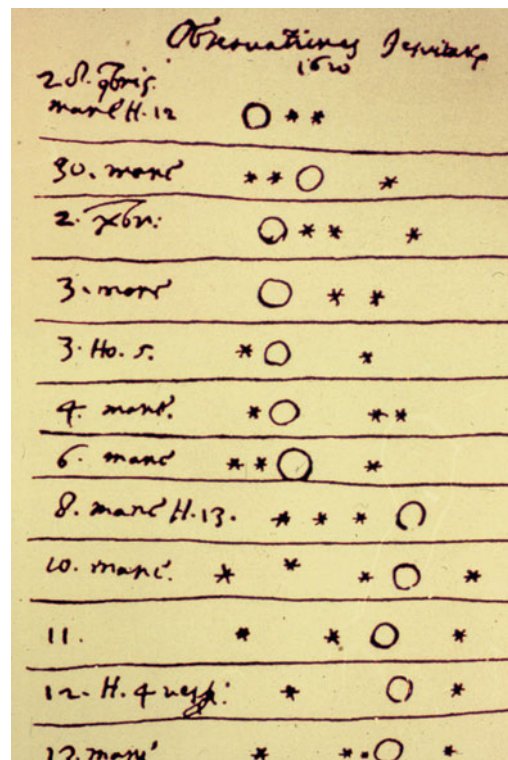 Observationes Jesuitarum
1610
2. 8. 9bris.
mane H. 12
30. mane
2. Xbr:
3. mane
3. Ho. 5.
4. mane.
6. mane
8. mane H. 13.
10. mane.
11.
12. H. 4 vesp:
13. mane